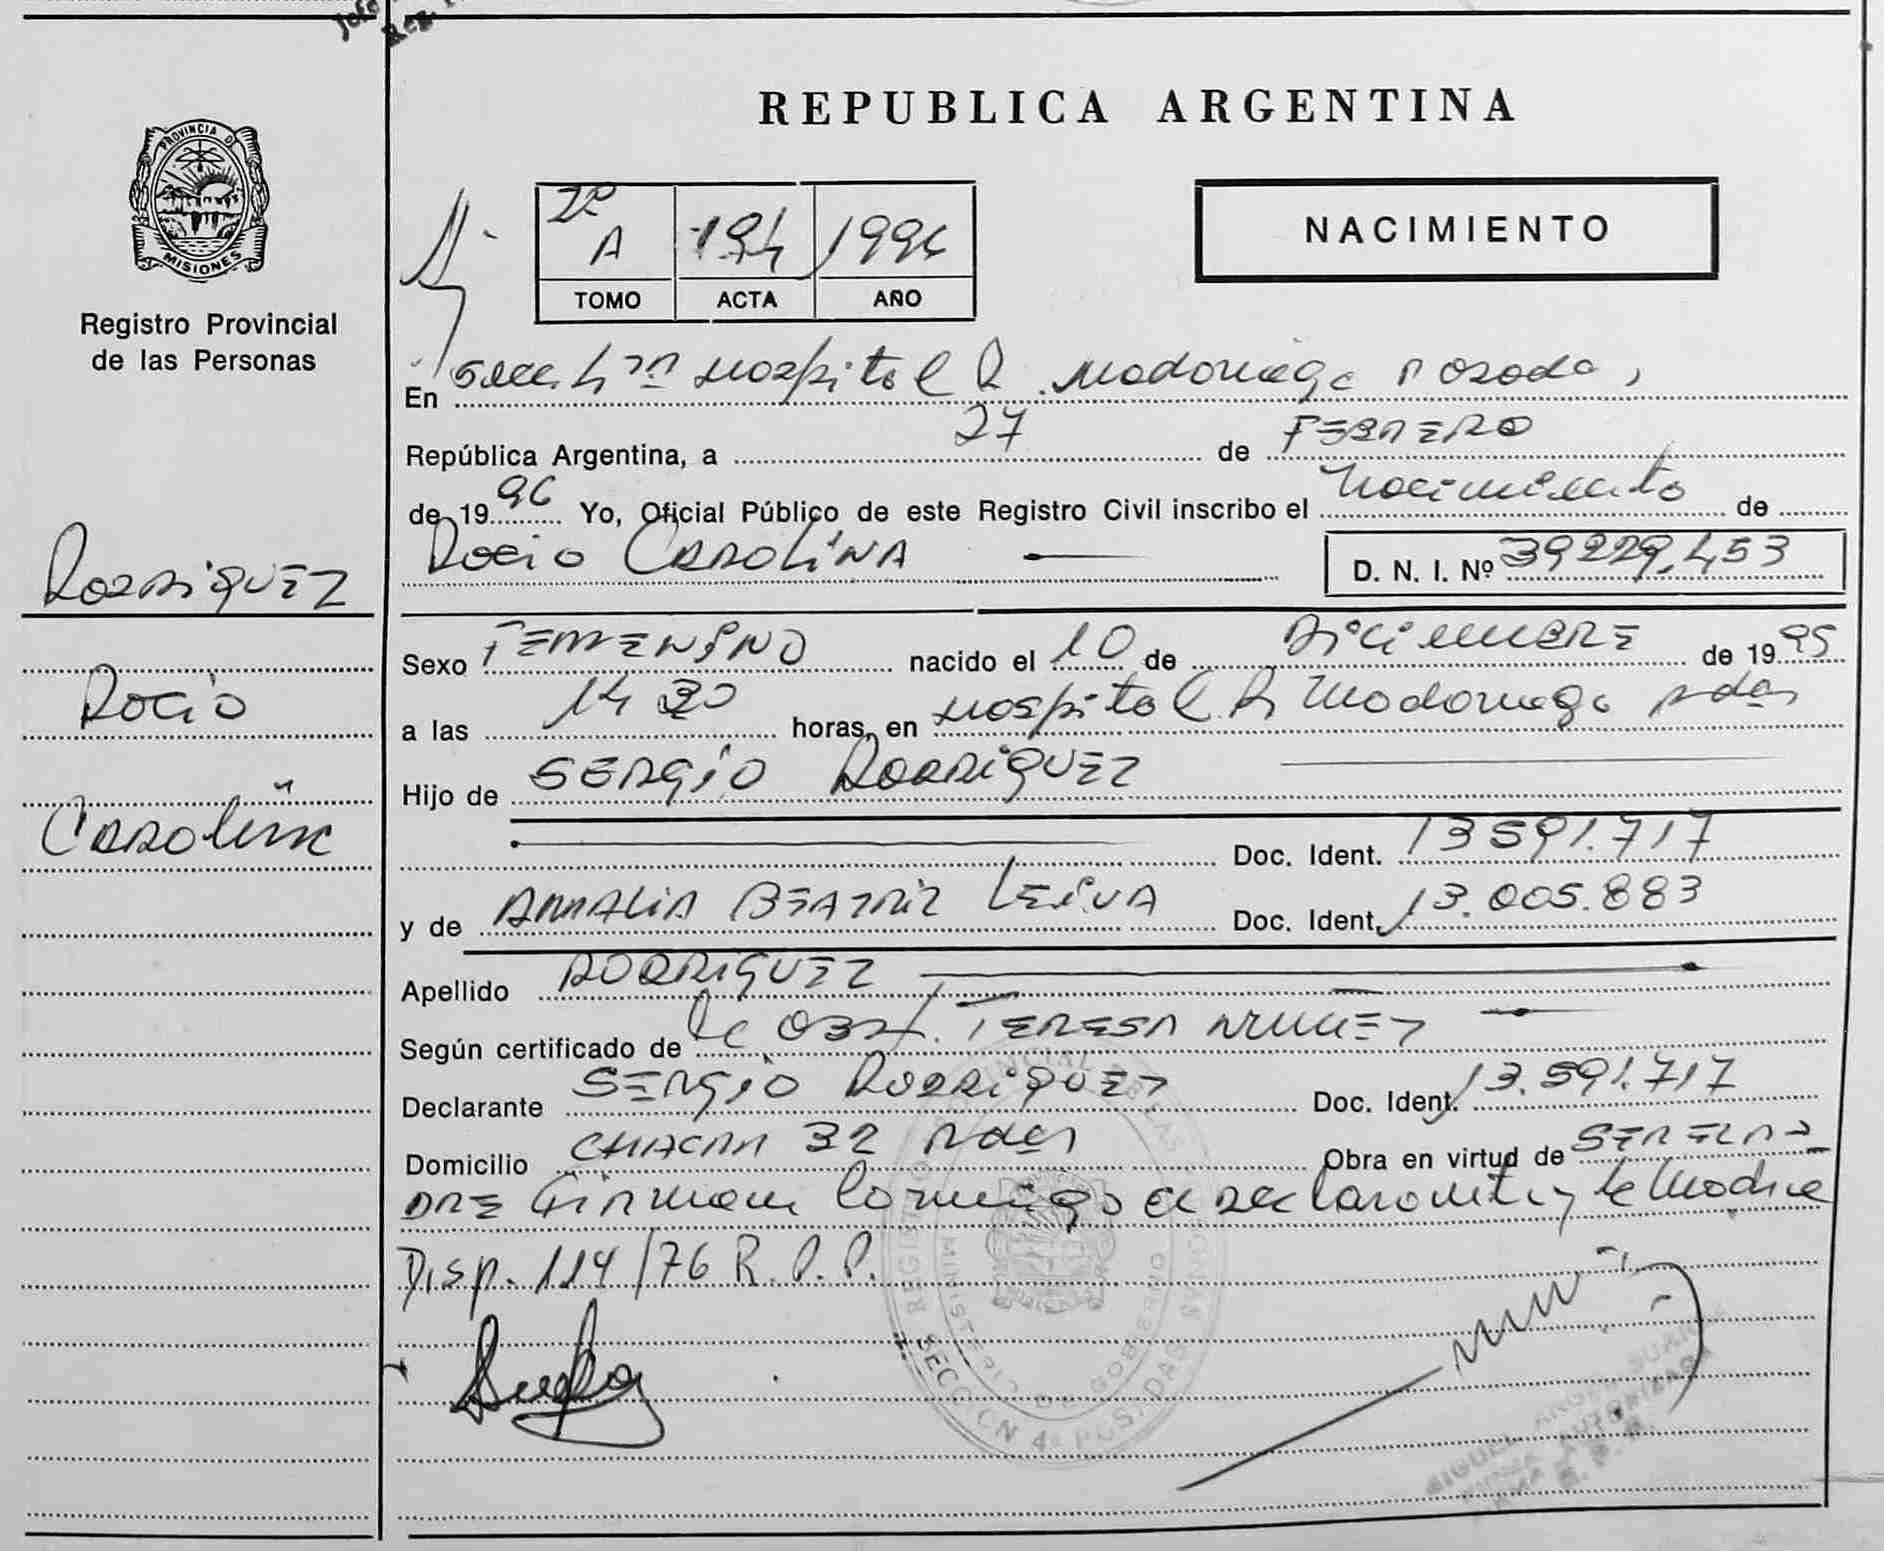 REPUBLICA ARGENTINA
PROVINCIA DE
MISIONES
Registro Provincial
de las Personas
2º
A 194 1996
TOMO ACTA AÑO
NACIMIENTO
En Secc. 4ta Hospital R. Madariaga Posadas,
República Argentina, a 27 de FEBRERO
de 1996 Yo, Oficial Público de este Registro Civil inscribo el Nacimiento de
Rocio CAROLINA D. N. I. Nº 39229.453
RODRIGUEZ
Rocio
Carolina
Sexo FEMENINO nacido el 10 de DiCiEMBRE de 1995
a las 14 30 horas, en Hospital R. Madariaga Pdas
Hijo de SERGIO RODRIGUEZ
Doc. Ident. 13591.717
y de AMALIA BEATRIZ LEIVA Doc. Ident. 13.005.883
Apellido RODRIGUEZ
Según certificado de la OBST. TERESA NUÑEZ
Declarante SERGIO RODRIGUEZ Doc. Ident. 13.591.717
Domicilio CHACRA 32 Pdas Obra en virtud de SER EL PA
DRE Firman conmigo el declarante y la Madre
Disp. 114/76 R.P.P.
REGISTRO PROVINCIAL DE LAS PERSONAS
MINISTERIO DE GOBIERNO
SECCION 4ª POSADAS
MIGUEL ANGEL
FIRMA AUTORIZADA